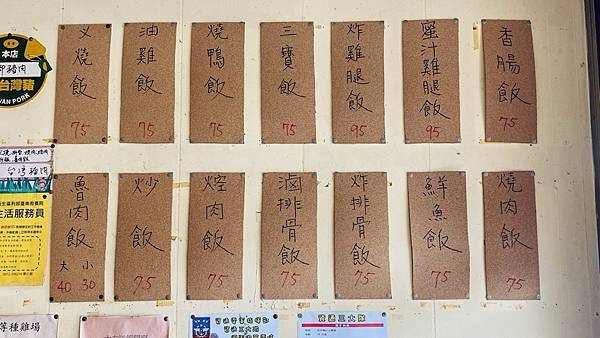 本店
台灣豬
WAN PORK
叉燒飯
75
油雞飯
75
燒鴨飯
75
三寶飯
75
炸雞腿飯
95
蜜汁雞腿飯
95
香腸飯
75
台灣豬肉
魯肉飯
大 小
40 30
炒飯
75
焢肉飯
75
滷排骨飯
75
炸排骨飯
75
鮮魚飯
75
燒肉飯
75
生活服務員
等種雞場
資通三大隊